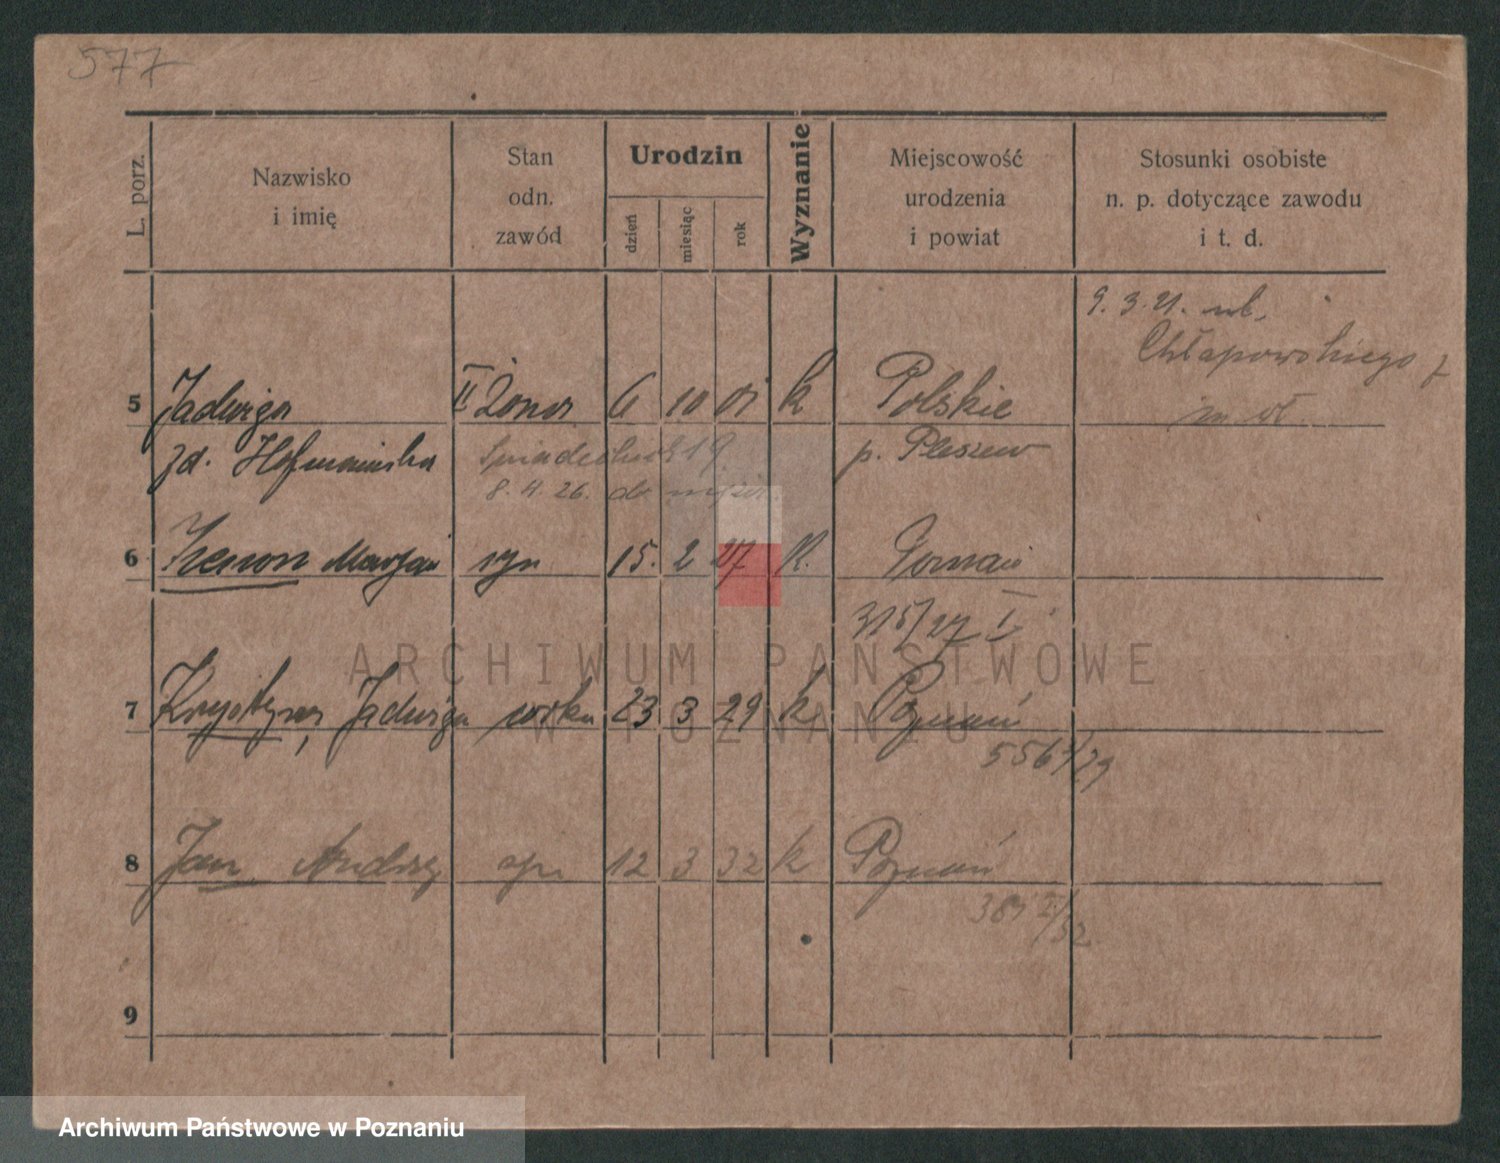 577
L. porz.
Nazwisko
i imię
Stan
odn.
zawód
Urodzin
dzień
miesiąc
rok
Wyznanie
Miejscowość
urodzenia
i powiat
Stosunki osobiste
n. p. dotyczące zawodu
i t. d.
9. 3. 21. ul.
Chłapowskiego 7
5 Jadwiga II Żona 6 10 01 k Polskie
zd. Hofmańska p. Pleszew
8. 4. 26. do
6 Zenon Marjan syn 15. 2 27 k. Poznań
315/27 I
ARCHIWUM PAŃSTWOWE
W POZNANIU
7 Krystyna, Jadwiga córka 23 3 29 k Poznań
556 I/29
8 Jan Andrzej syn 12 3 32 k Poznań
9
Archiwum Państwowe w Poznaniu